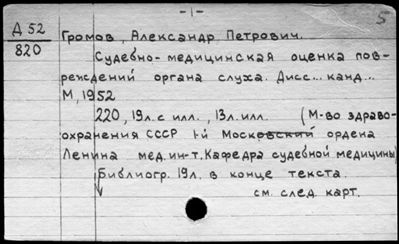 - 1 -
5
Д 52
820
Громов, Александр Петрович.
Судебно-медицинская оценка пов-
реждений органа слуха. Дисс... канд...
М, 1952
220, 19л. с илл., 13л. илл. (М-во здраво-
охранения СССР 1-й Московский ордена
Ленина мед. ин-т. Кафедра судебной медицины)
Библиогр. 19л. в конце текста.
см. след. карт.